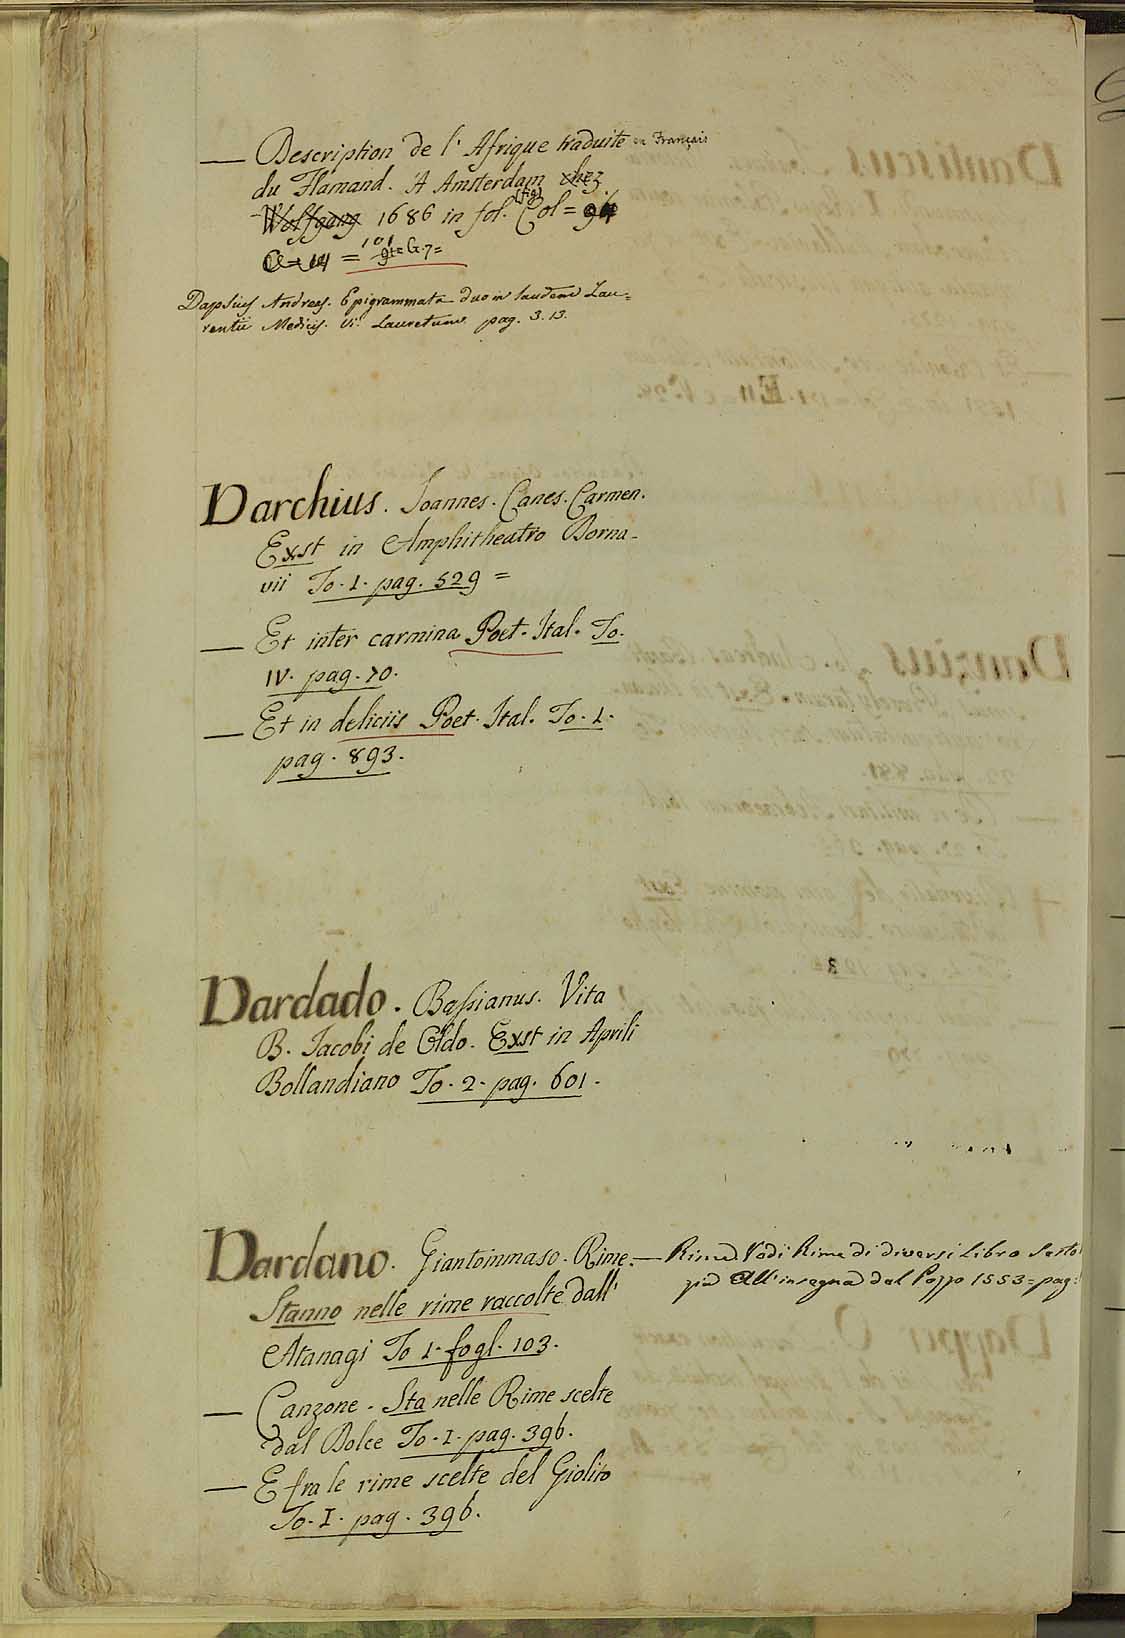 — Description de l'Afrique traduite en Français
du Flamand. A Amsterdam chez
Wolfgang 1686 in fol. (fig) Col = 94
= 101 G. 7 =
Dapsius Andreas. Epigrammata duo in laudem Lau=
rentii Medicis. Vi. Lauretum pag. 3. 13.
Darchius. Joannes. Canes. Carmen.
Exst in Amphitheatro Dorna-
vii To. 1. pag. 529 =
— Et inter carmina Poet. Ital. To.
IV. pag. 70.
— Et in deliciis Poet. Ital. To. 1.
pag. 893.
Dardado. Bassianus. Vita
B. Jacobi de Oldo. Exst in Aprili
Bollandiano To. 2. pag. 601.
Dardano. Giantommaso. Rime.
Stanno nelle rime raccolte dall'
Atanagi To 1. fogl. 103.
— Canzone. Sta nelle Rime scelte
dal Dolce To. I. pag. 396.
— E fra le rime scelte del Giolito
To. I. pag. 396.
— Rime. Vedi Rime di diversi Libro Sesto
all'insegna del Pozzo 1553 = pag: